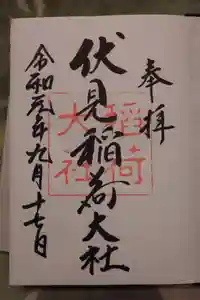 奉拝
伏見稲荷大社
稲荷
大社
令和元年九月十七日